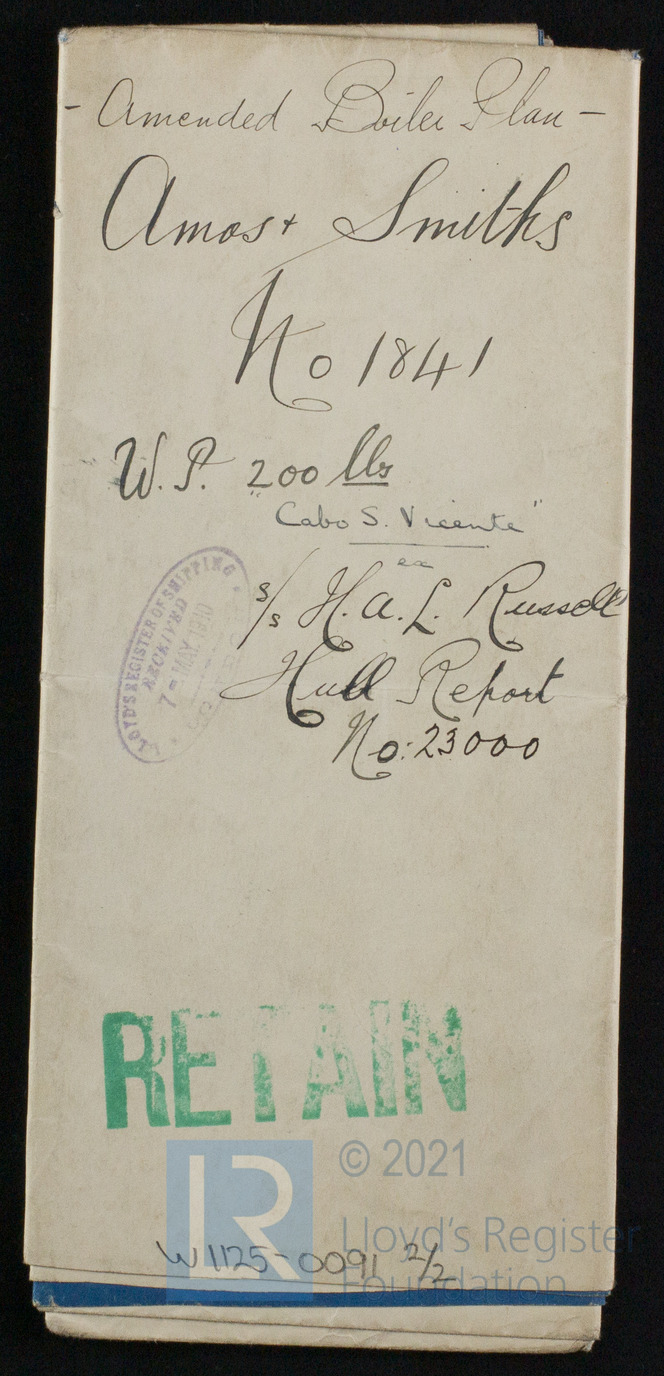 - Amended Boiler Plan -
Amos & Smiths
No 1841
W.P. 200 lbs
"Cabo S. Vicente"
ex
S/S H.A.L. Russell
Hull Report
No: 23000
LLOYD'S REGISTER OF SHIPPING
RECEIVED
7 = MAY 1910
RETAIN
LR
© 2021
Lloyd's Register
Foundation
W1125-0091 2/2